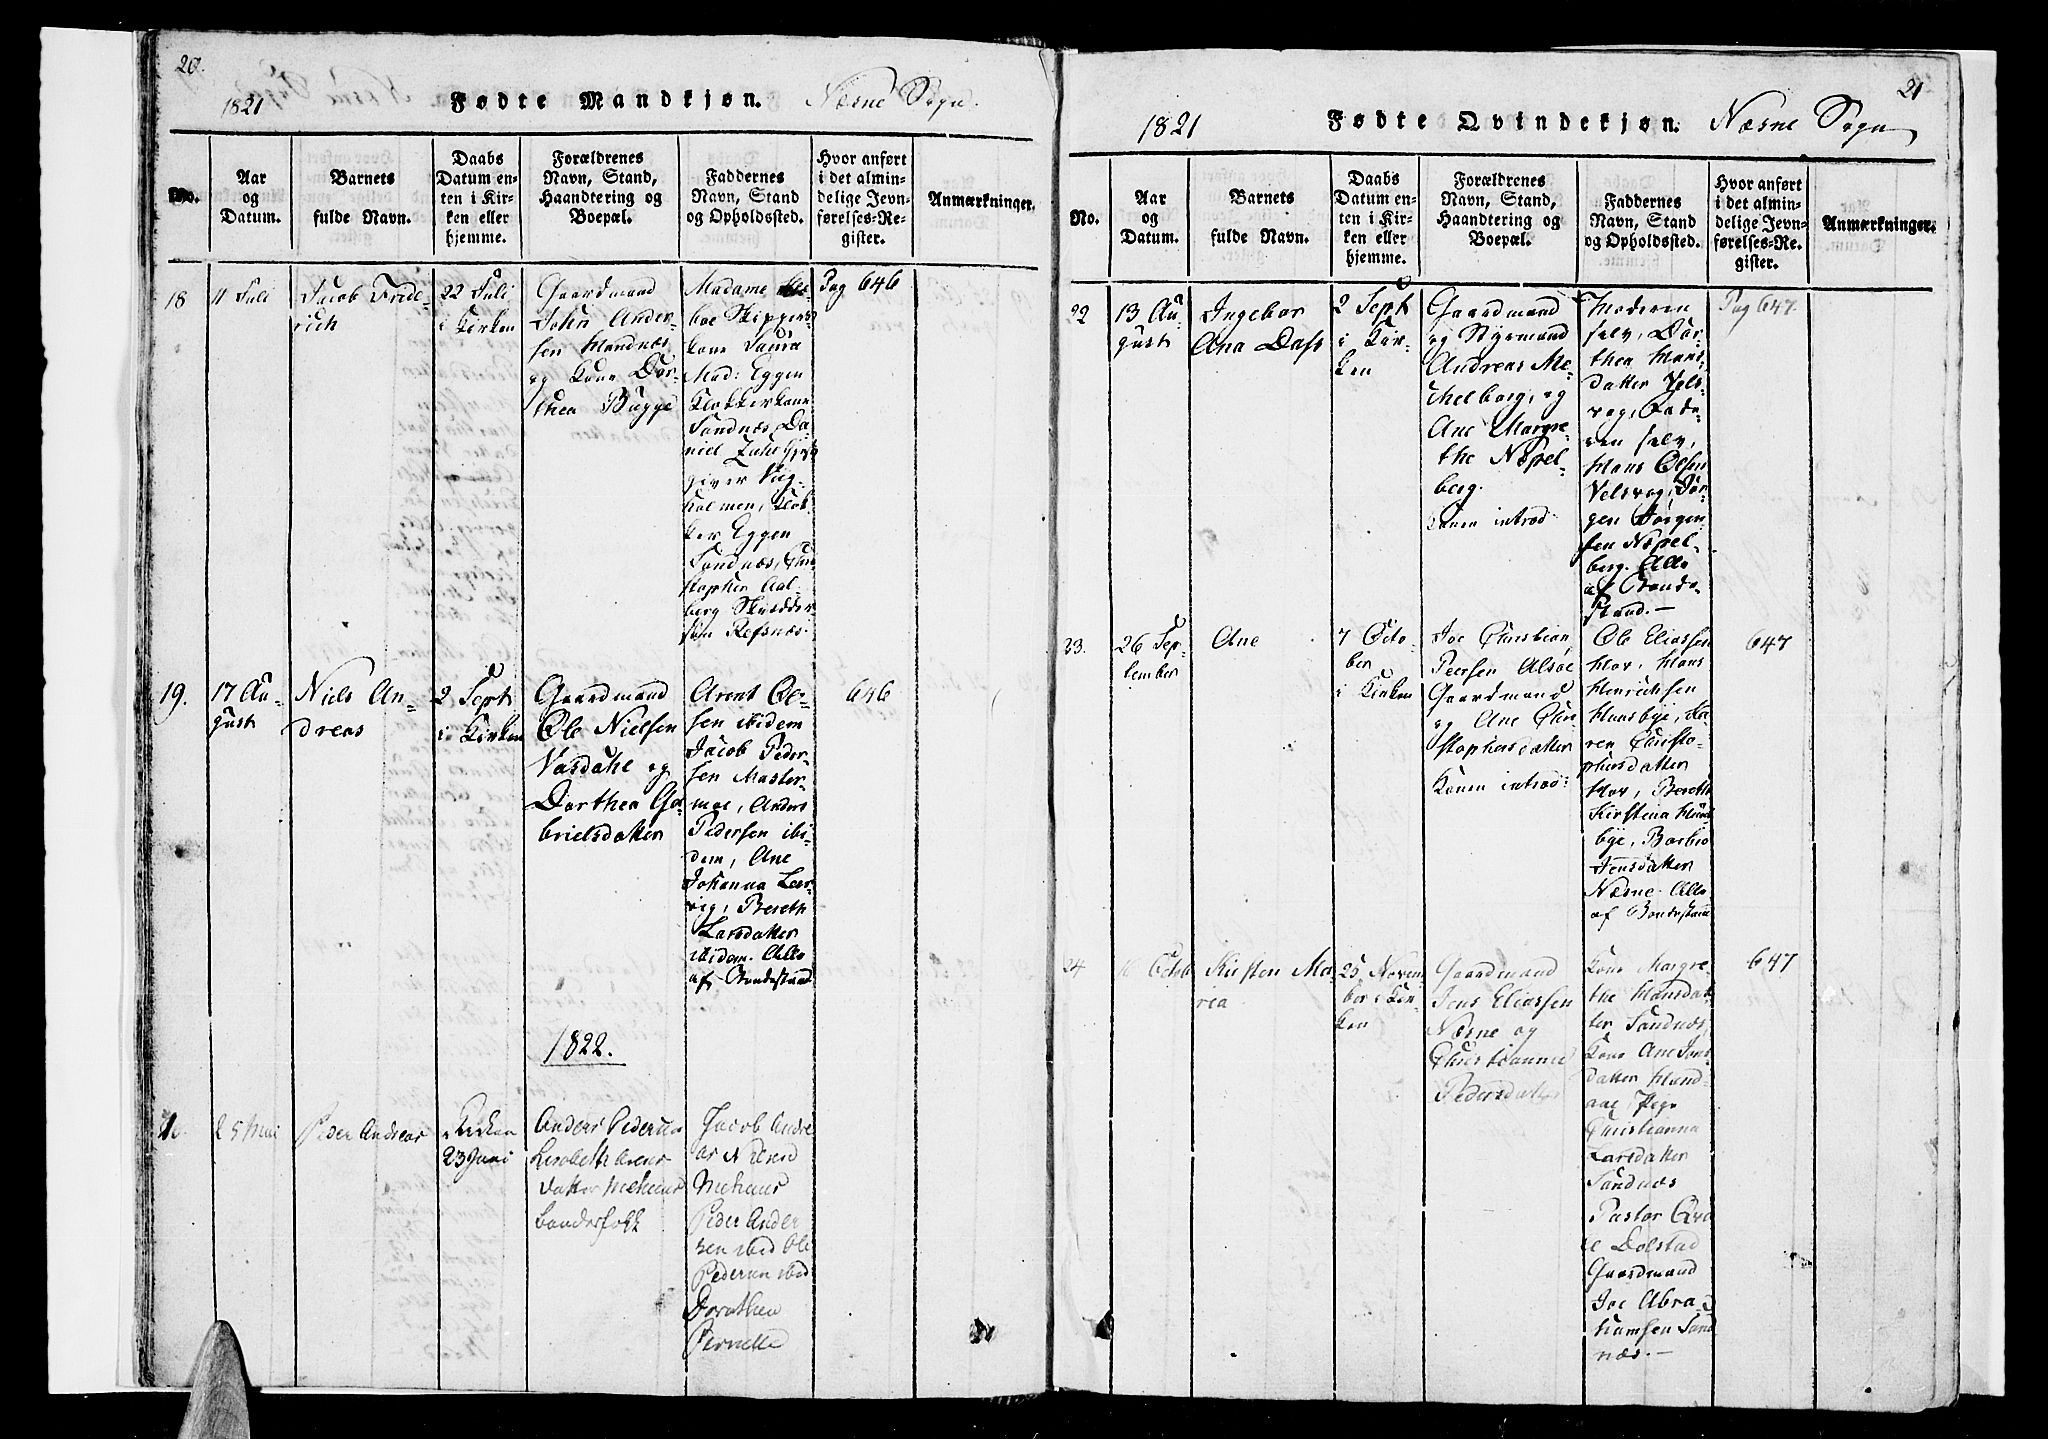 20.
1821 Fødte Mandkjøn. Næsne Sogn.
No.
Aar
og
Datum.
Barnets
fulde Navn.
Daabs
Datum en-
ten i Kir-
ken eller
hjemme.
Forældrenes
Navn, Stand,
Haandtering og
Boepæl.
Faddernes
Navn, Stand
og Opholdssted.
Hvor anført
i det almin-
delige Jevn-
førelses-Re-
gister.
Anmærkninger.
18
11 Juli
Jacob Fride-
rich
22 Juli
i Kirken
Gaardmand
John Ander-
sen Handnæs
og Kone Dor-
thea Bugge
Madame
Skippers
kone
Mad: Eggen
Klokkerkone
Sandnæs, Da-
niel Zahl
giver Vig-
holmen, Klok-
ker Eggen
Sandnæs, Chri-
stopher Aal-
berg Skrædder-
Refsnæs.
Pag 646
19.
17 Au-
gust
Niels An-
dreas
2 Sept
i Kirken
Gaardmand
Ole Nielsen
Vasdahl og
Dorthea Ga-
brielsdatter
Arent Ol-
sen ibidem
Jacob Peder-
sen Master-
moe, Anders
Pedersen ibi-
dem, Ane
Johanna Leer-
vig, Bereth
Larsdatter
ibidem. Alle
af Bondestand
646
1822.
1.
25 Mai
Peder Andreas
Kirken
23 Juni
Anders Pedersen
Lisabeth
datter
Bønderfolk
Jacob Andre
as
Peder Ander
sen ibid Ole
Pedersen ibid
Dorothea
Pernille
21
1821 Fødte Qvindekjøn. Næsne Sogn
No.
Aar
og
Datum.
Barnets
fulde Navn.
Daabs
Datum en-
ten i Kir-
ken eller
hjemme.
Forældrenes
Navn, Stand,
Haandtering og
Boepæl.
Faddernes
Navn, Stand
og Opholdssted.
Hvor anført
i det almin-
delige Jevn-
førelses-Re-
gister.
Anmærkninger.
22
13 Au-
gust
Ingebor
Ana Dass
2 Sept
i Kir-
ken
Gaardmand
og Styrmand
Andreas Me-
chelborg, og
Ane Margre-
the Næpel-
berg.
Konen introd
Moderen
selv, Dor-
thea Hans-
datter
Fade-
ren selv,
Hans Olsen
Velsvog, Jør-
gen Jørgen-
sen Næpel-
berg. Alle
af Bonde-
stand.—
Pag 647.
23.
26 Sep-
tember
Ane
7 Octo-
ber
i Kirken
Joe Christian
Peersen Alsøe
Gaardmand
og Ane Chri-
stophersdatter
Konen introd:
Ole Eliassen
Hov, Hans
Henrichsen
Huusbye, Ka-
ren Christo-
phersdatter
Hov, Bereth
Kirstina Huus-
bye, Barbro
Jensdatter
Næsne. Alle
af Bondestand
647
24
Octob
Kirsten Ma-
ria
25 Novem-
ber i Kir-
ken
Gaardmand
Jens Eliassen
Næsne og
Christianna
Pedersdatter
Kone Margre-
the Hansdat-
ter Sandnæs,
Kone Ane Jens-
datter Hand-
Pige
Christianna
Larsdatter
Sandnæs
Pastor Qva-
le Dolstad
Gaardmand
Joe Abra-
hamsen Sand
næs.—
647